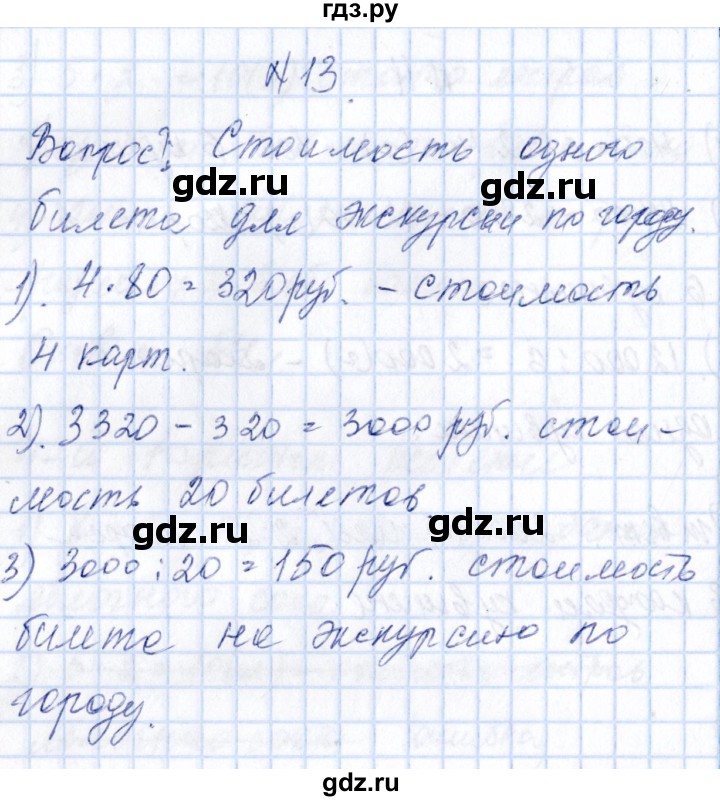 гдз.ру
№13.
Вопрос: Стоимость одного
gdz.ru gdz.ru
билета для экскурсии по городу.
1). 4·80=320 руб. - стоимость
4 карт.
2). 3320 - 320 = 3000 руб. стои-
мость 20 билетов
gdz.ru gdz.ru
3) 3000:20=150 руб. стоимость
билета на экскурсию по
городу.
gdz.ru